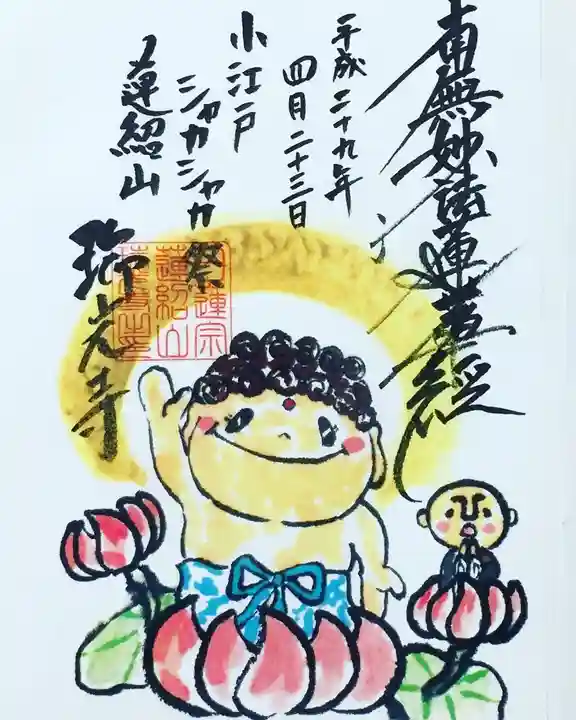 南無妙法蓮華経
平成二十九年
四月二十三日
小江戸
シャカシャカ祭
蓮紹山
瑞光寺
日蓮宗
蓮紹山